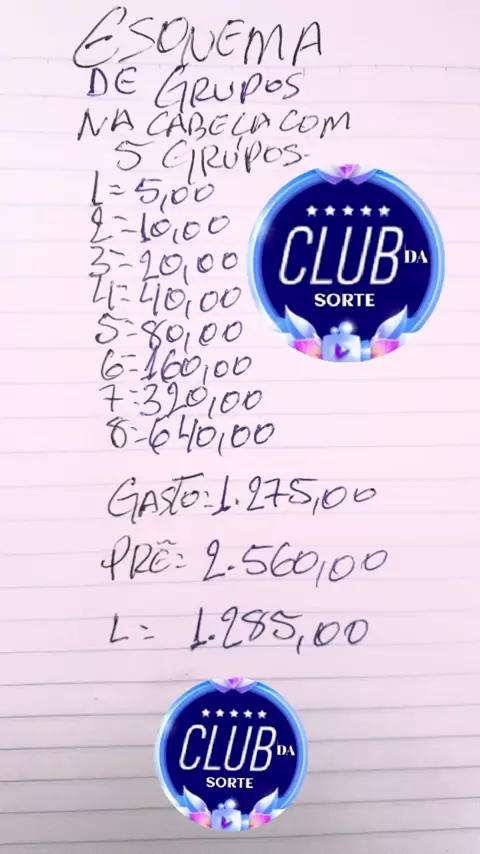 ESQUEMA
DE GRUPOS
NA CABEÇA COM
5 GRUPOS-
1=5,00
2=10,00
3=20,00
4=40,00
5=80,00
6=160,00
7=320,00
8=640,00
CLUB DA
SORTE
GASTO=1.275,00
PRÊ= 2.560,00
L= 1.285,00
CLUB DA
SORTE